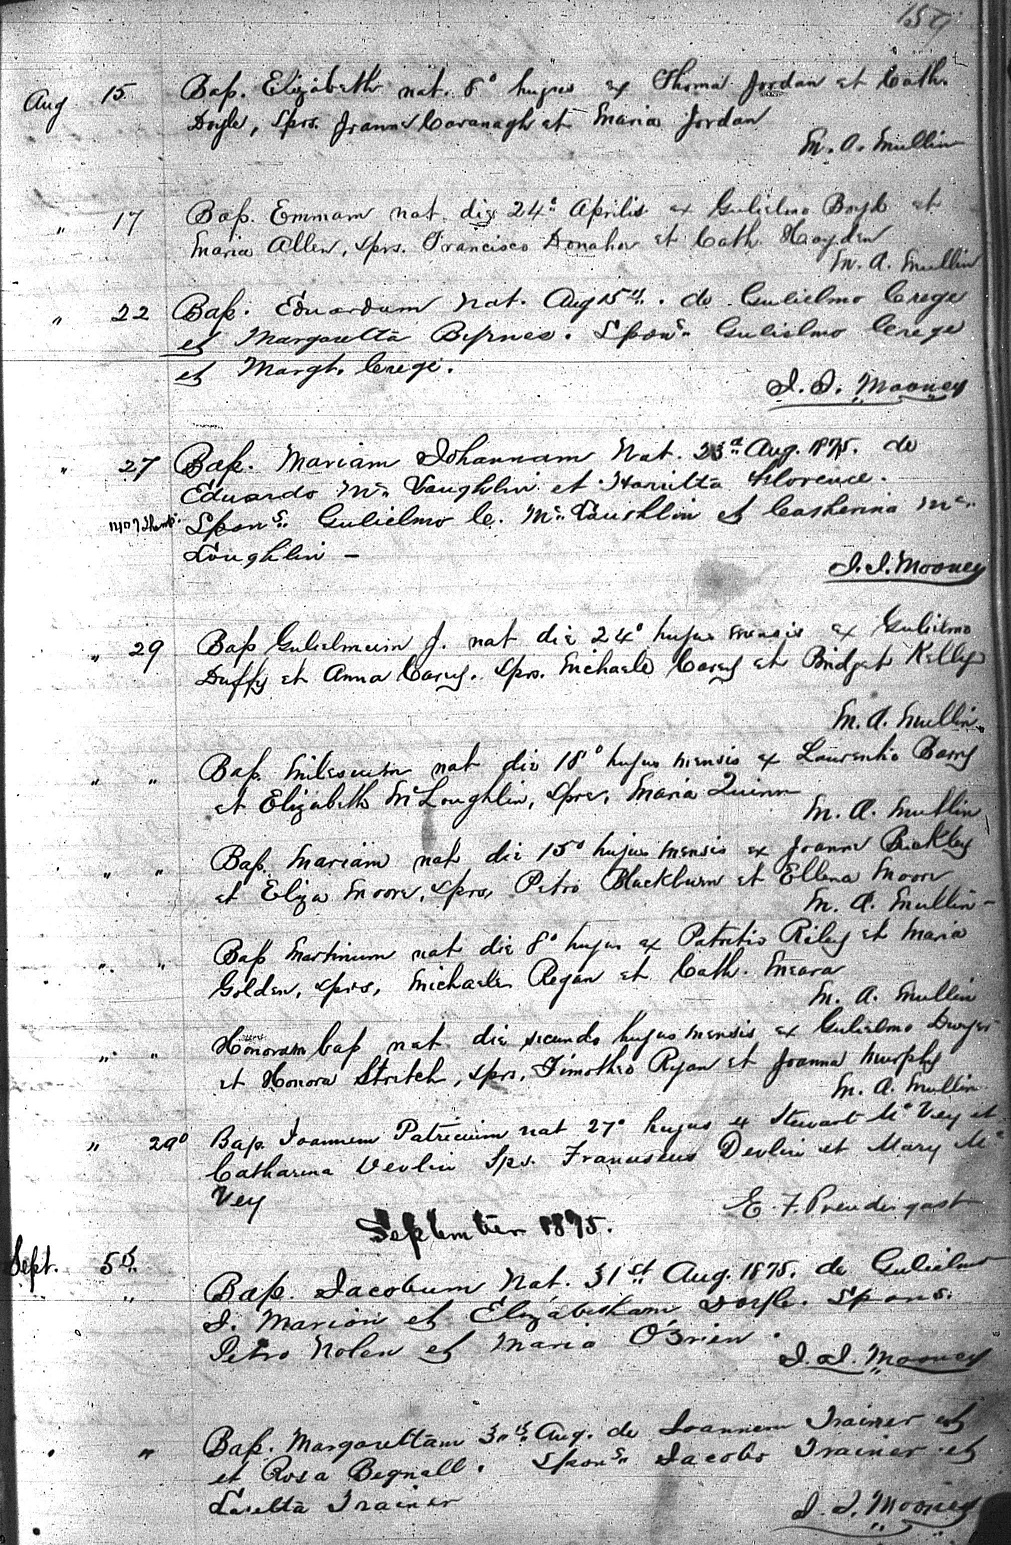 159
Aug 15 Bap. Elizabeth nat. 8° hujus ex Thoma Jordan et Cath.
Doyle, Sprs. Joanne Cavanagh et Maria Jordan
M. A. Mullin
" 17 Bap. Emmam nat. die 24° Aprilis ex Gulielmo Boyle et
Maria Allen, Sprs. Francisco Donahoe et Cath. Hayden
M. A. Mullin
" 22 Bap. Eduardum Nat. Aug 15th. de Gulielmo Crege
et Margaretta Byrnes. Spons. Gulielmo Crege
et Margt. Crege.
J. J. Mooney
" 27 Bap. Mariam Johannam Nat. 23d Aug. 1875. de
Eduardo Mc Laughlin et Harietta Florence.
Spons. Gulielmo C. Mc Laughlin et Catherina Mc
Loughlin —
J. J. Mooney
" 29 Bap Gulielmum J. nat die 24° hujus mensis ex Gulielmo
Duffy et Anna Carey. Sprs. Michaele Carey et Bridget Kelly
M. A. Mullin
" " Bap. Milesium nat die 18° hujus mensis ex Laurentio Barry
et Elizabeth McLoughlin, Sprs, Maria Quinn
M. A. Mullin
" " Bap. Mariam nat die 15° hujus mensis ex Joanne Buckley
et Eliza Moore, sprs, Petro Blackburn et Ellena Moore
M. A. Mullin -
" " Bap Martinum nat die 8° hujus ex Patritio Riley et Maria
Golden, sprs, Michaele Regan et Cath. Meara
M. A. Mullin
" " Honoram bap nat die secundo hujus mensis ex Gulielmo Dwyer
et Honora Stretch, sprs, Timotheo Ryan et Joanna Murphy
M. A. Mullin
" 29° Bap. Joannem Patricium nat 27° hujus ex Stewart McVey et
Catharina Devlin Sps. Franciscus Devlin et Mary Mc
Vey
E. F. Prendergast
September 1875.
Sept. 5th
" Bap. Jacobum Nat. 31st Aug. 1875. de Gulielmo
J. Marion et Elizabetham Doyle. Spons.
Petro Nolen et Maria O'Brien.
J. J. Mooney
" " Bap. Margarettam 30th Aug. de Joannem Trainer et
et Rosa Begnall. Spons Jacobo Trainer et
Loretta Trainer
J. J. Mooney